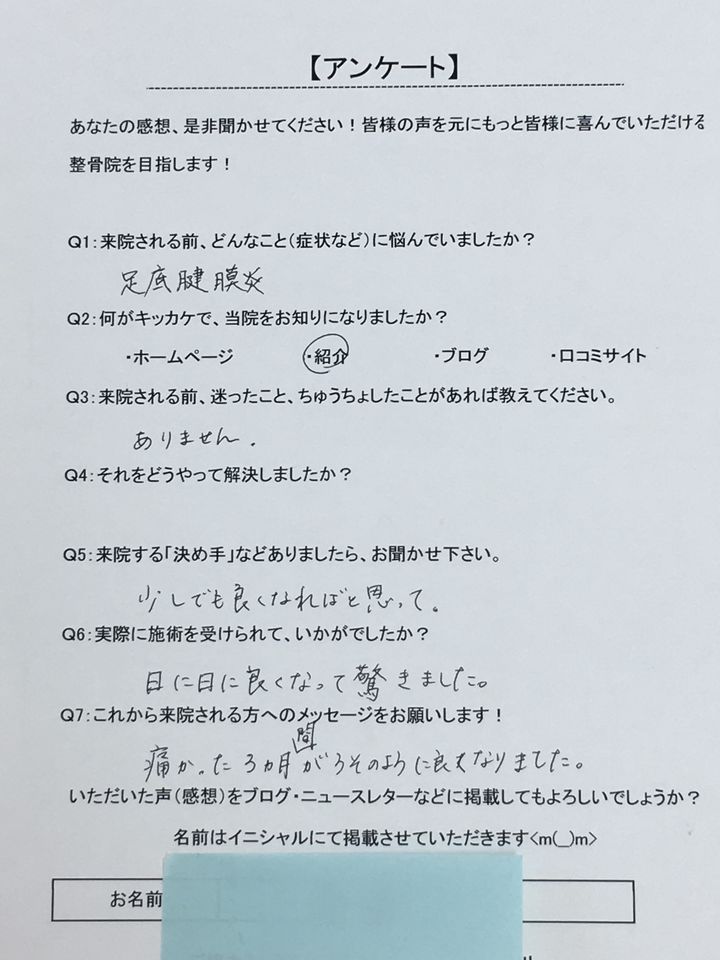 【アンケート】
あなたの感想、是非聞かせてください！皆様の声を元にもっと皆様に喜んでいただける
整骨院を目指します！
Q1：来院される前、どんなこと（症状など）に悩んでいましたか？
足底腱膜炎
Q2：何がキッカケで、当院をお知りになりましたか？
・ホームページ ・紹介 ・ブログ ・口コミサイト
Q3：来院される前、迷ったこと、ちゅうちょしたことがあれば教えてください。
ありません。
Q4：それをどうやって解決しましたか？
Q5：来院する「決め手」などありましたら、お聞かせ下さい。
少しでも良くなればと思って。
Q6：実際に施術を受けられて、いかがでしたか？
日に日に良くなって驚きました。
Q7：これから来院される方へのメッセージをお願いします！
痛かった3ヵ月間がうそのように良くなりました。
いただいた声（感想）をブログ・ニュースレターなどに掲載してもよろしいでしょうか？
名前はイニシャルにて掲載させていただきます<m(_)m>
お名前